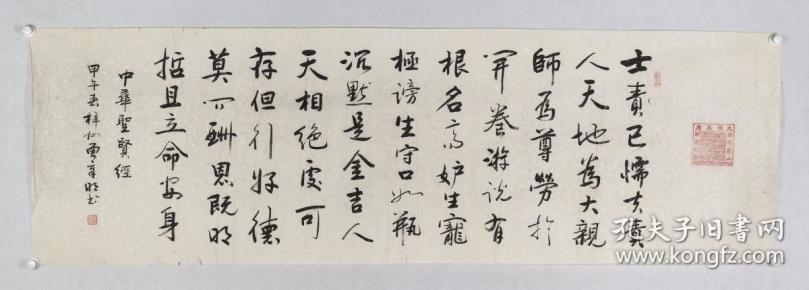 士責己懦夫責
人天地為大親
師為尊勞於
開卷游説有
根名高妒生寵
極謗生守口如瓶
沉默是金吉人
天相絕處可
存但行好德
莫問酬恩既明
哲且立命安身
中華聖賢經
甲午春
孔夫子旧书网
www.kongfz.com